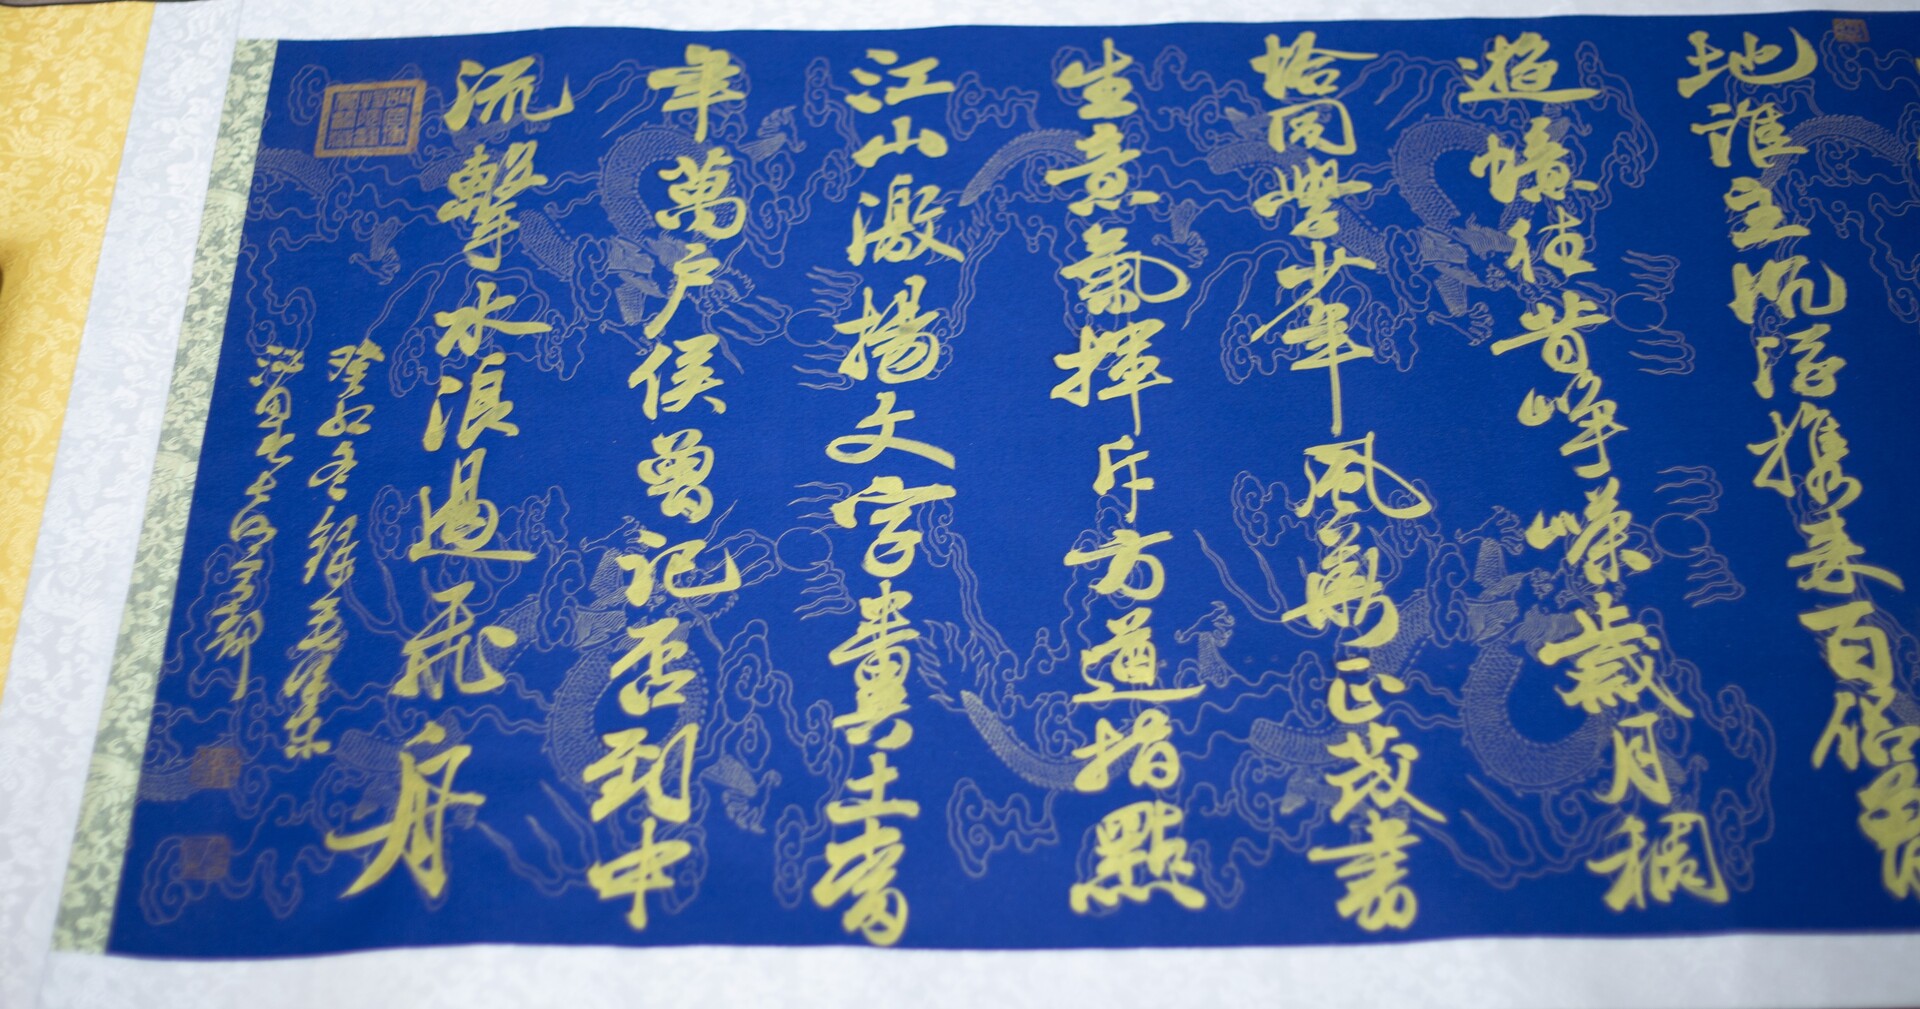 地誰主沉浮携来百侣曾
遊憶往昔崢嶸歲月稠
恰同學少年風華正茂書
生意氣揮斥方遒指點
江山激揚文字糞土當
年萬户侯曾記否到中
流擊水浪遏飛舟
癸卯冬錄毛澤東